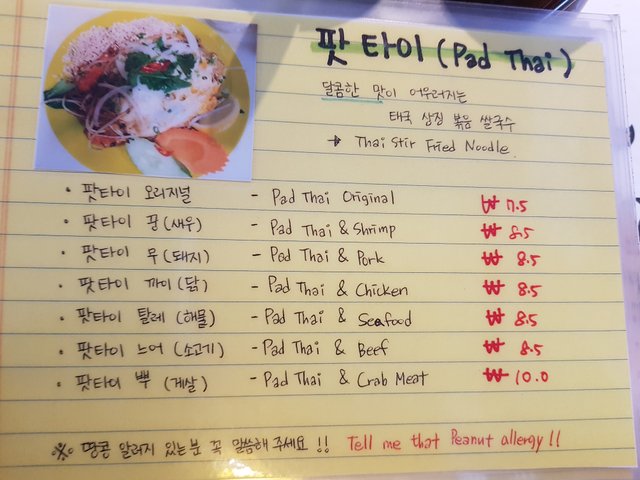 팟 타이 (Pad Thai)
달콤한 맛이 어우러지는
태국 삼진 볶음 쌀국수
→ Thai Stir Fried Noodle.
• 팟타이 오리지널 - Pad Thai Original ₩ 7.5
• 팟타이 꿍 (새우) - Pad Thai & Shrimp ₩ 8.5
• 팟타이 무 (돼지) - Pad Thai & Pork ₩ 8.5
• 팟타이 까이 (닭) - Pad Thai & Chicken ₩ 8.5
• 팟타이 탈레 (해물) - Pad Thai & Seafood ₩ 8.5
• 팟타이 느어 (소고기) - Pad Thai & Beef ₩ 8.5
• 팟타이 뿌 (게살) - Pad Thai & Crab Meat ₩ 10.0
※ 땅콩 알러지 있는분 꼭 말씀해 주세요 !! Tell me that Peanut allergy!!